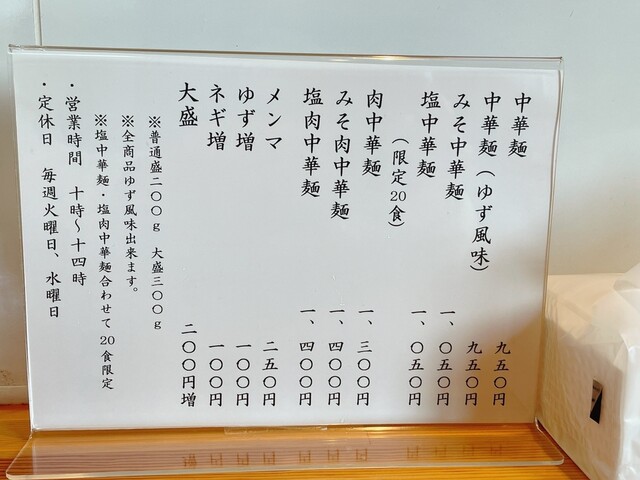 中華麺 九五〇円
中華麺(ゆず風味) 九五〇円
みそ中華麺 一、〇五〇円
塩中華麺 一、〇五〇円
(限定20食)
肉中華麺 一、三〇〇円
みそ肉中華麺 一、四〇〇円
塩肉中華麺 一、四〇〇円
メンマ 二五〇円
ゆず増 一〇〇円
ネギ増 一〇〇円
大盛 二〇〇円増
※普通盛二〇〇g 大盛三〇〇g
※全商品ゆず風味出来ます。
※塩中華麺・塩肉中華麺合わせて20食限定
・営業時間 十時〜十四時
・定休日 毎週火曜日、水曜日